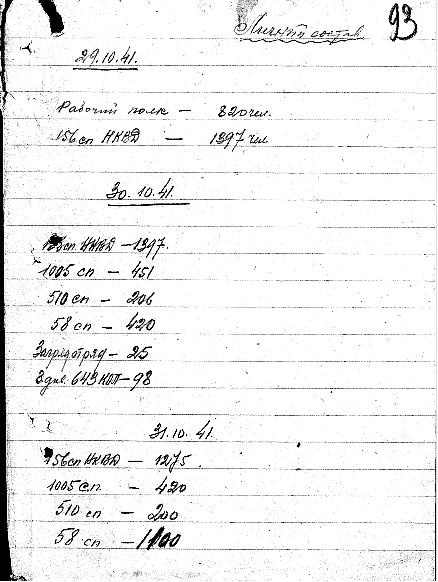 93
Личный состав
29.10.41.
Рабочий полк — 820 чел.
156 сп НКВД — 1397 чел
30.10.41.
156 сп. НКВД — 1397.
1005 сп — 451
510 сп — 206
58 сп — 420
Заградотряд — 25
3 див. 643 КАП — 98
31.10.41.
156 сп НКВД — 1275.
1005 сп. — 420
510 сп — 200
58 сп —